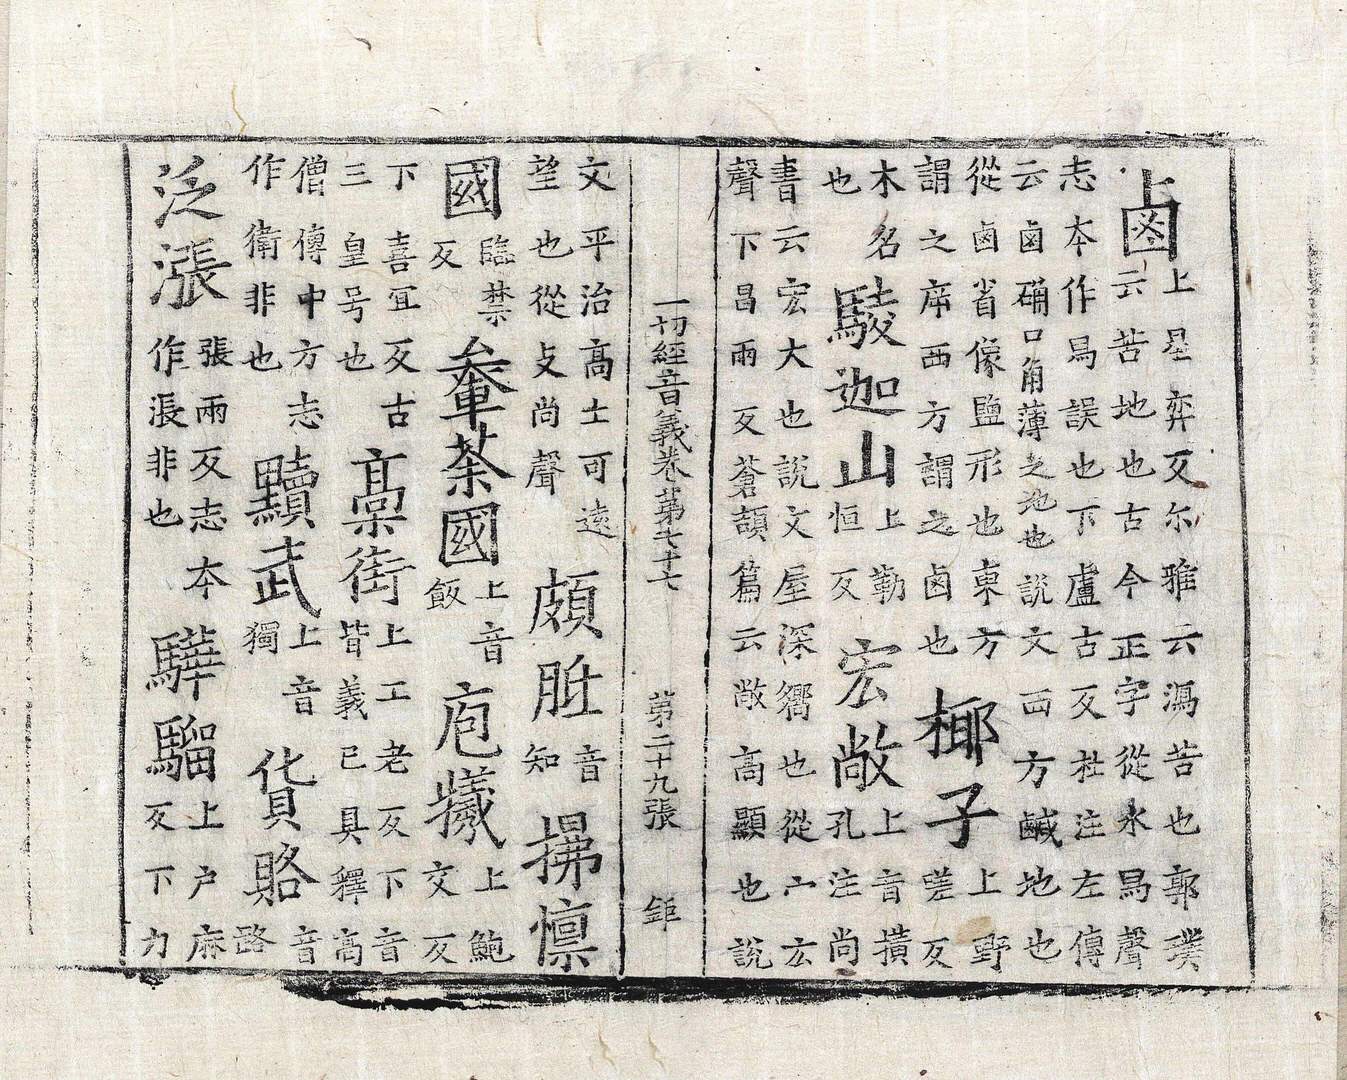 鹵
上星弈反尔雅云潟苦也郭璞
云苦地也古今正字從水舄聲
志本作舄誤也下盧古反杜注左傳
云鹵确口角薄之地也說文西方鹹地也
從鹵省像鹽形也東方
謂之㡿西方謂之鹵也
椰子
上野
嗟反
木名
也
駿迦山
上勒
恒反
宏敞
上音橫
孔注尚
書云宏大也說文屋深嚮也從宀厷
聲下昌兩反蒼頡篇云敞高顯也說
一切經音義卷第七十七 第二十九張 鉅
文平治高土可遠
望也從攴尚聲
頗胝
音
知
拂懔
國
臨禁
反
輋荼國
上音
飯
庖犧
上鮑
交反
下喜宜反古
三皇号也
高街
上工老反下音
皆義已具釋高
僧傳中方志
作衛非也
黷武
上音
獨
貨賂
音
路
泛漲
張兩反志本
作漲非也
驊騮
上户麻
反下力